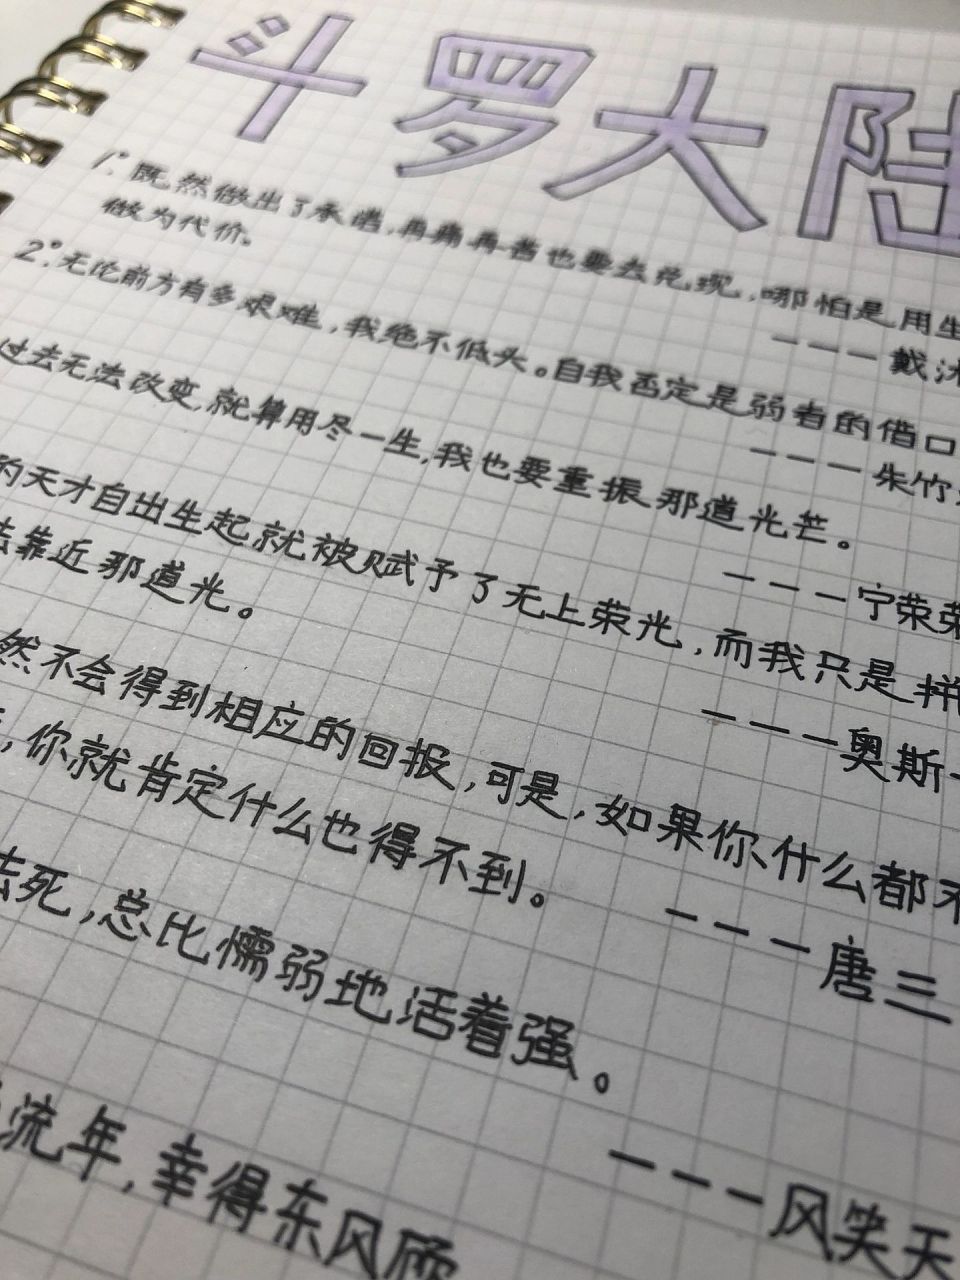 斗罗大陆
1°. 既然做出了承诺,再痛再苦也要去兑现,哪怕是用生
做为代价。
---戴沐
2°. 无论前方有多艰难,我绝不低头。自我否定是弱者的借口
---朱竹
过去无法改变,就算用尽一生,我也要重振那道光芒。
---宁荣荣
的天才自出生起就被赋予了无上荣光,而我只是拼
法靠近那道光。
---奥斯
然不会得到相应的回报,可是,如果你什么都不
,你就肯定什么也得不到。
---唐三
去死,总比懦弱地活着强。
---风笑天
流年,幸得东风顾